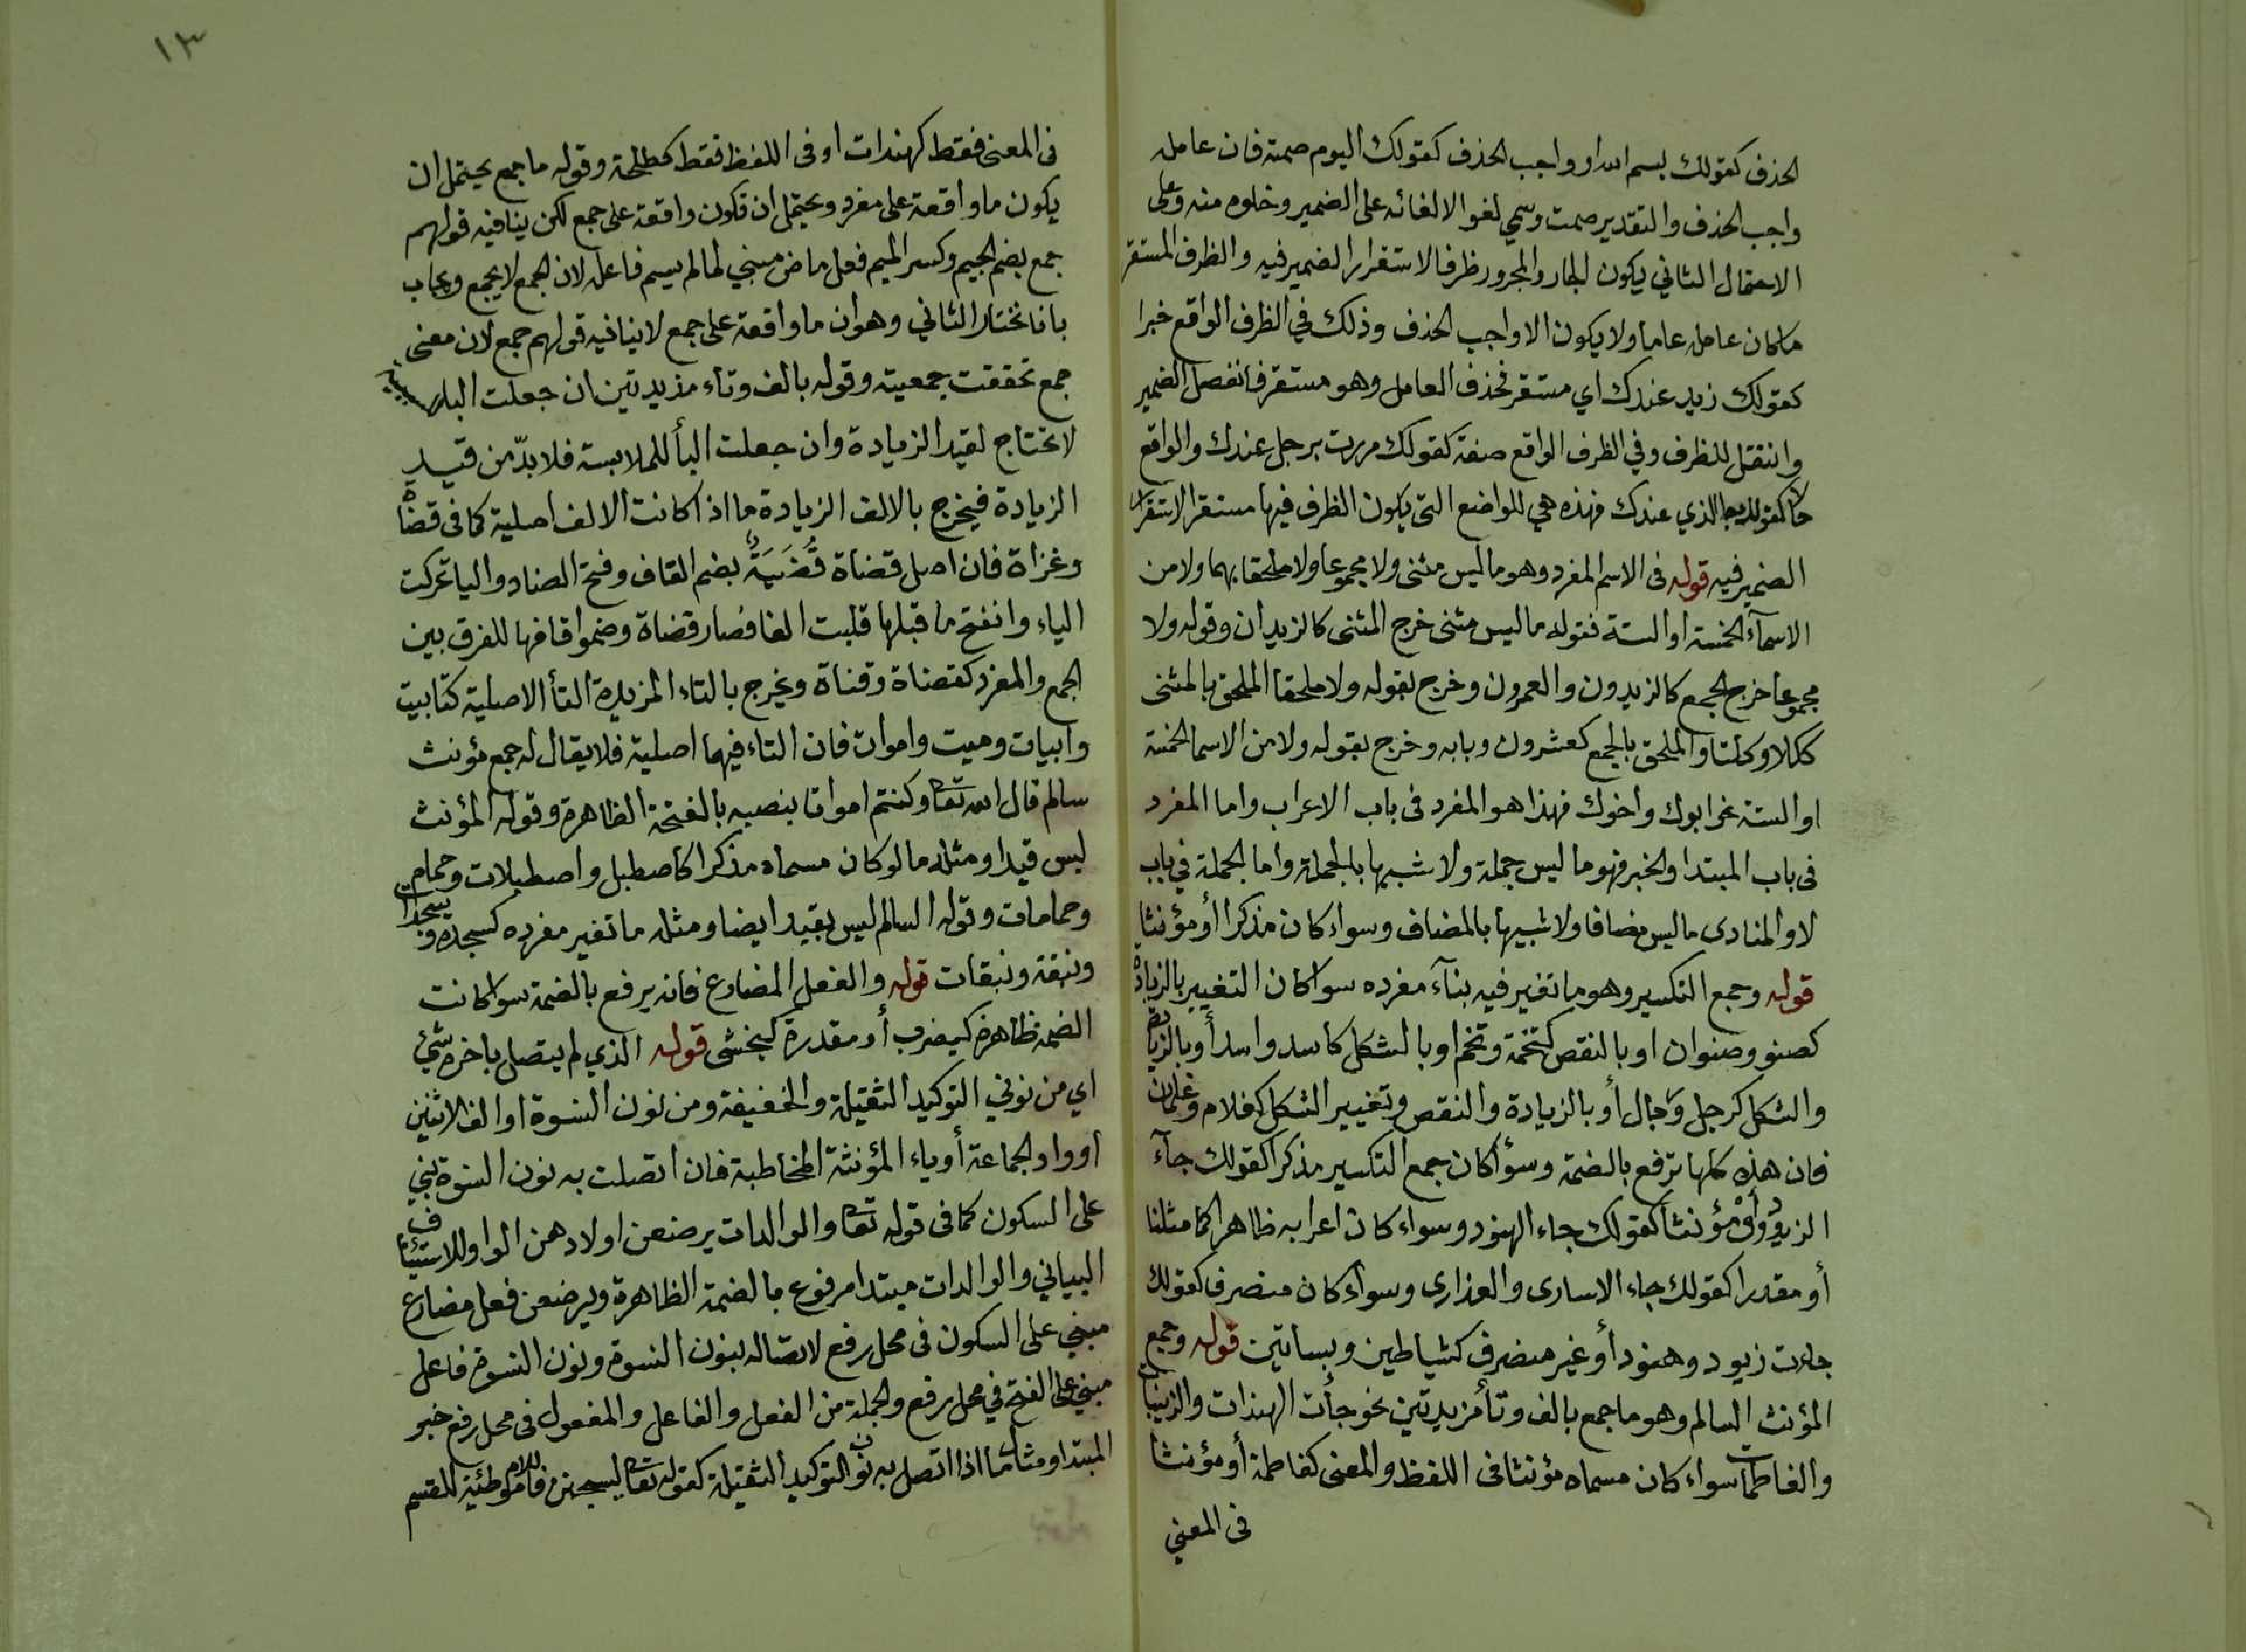 الحذف كقولك بسم الله او واجب الحذف كقولك اليوم صمته فان عامله
واجب الحذف والتقدير صمت وسمي لغوا لالغائه على الضمير وخلوه منه وعلى
الاحتمال الثاني يكون الجار والمجرور ظرفا لاستقرار الضمير فيه والظرف المستقر
ما كان عامله عاما ولا يكون الا واجب الحذف وذلك في الظرف الواقع خبرا
كقولك زيد عندك اي مستقر فحذف العامل وهو مستقر فانفصل الضمير
وانتقل للظرف وفي الظرف الواقع صفة كقولك مررت برجل عندك والواقع
الذي عندك فهذه هي المواضع التي يكون الظرف فيها مستقر الاستقرار
الضمير فيه قوله فى الاسم المفرد وهو ما ليس مثنى ولا مجموعا ولا ملحقا بهما ولا من
الاسمآء الخمسة او الستة فقوله ما ليس مثنى خرج المثنى كالزيدان وقوله ولا
مجموعا خرج الجمع كالزيدون والعمرون وخرج بقوله ولا ملحقا الملحق بالمثنى
ككلا وكلتا والملحق بالجمع كعشرون وبابه وخرج بقوله ولا من الاسما الخمسة
او الستة نحو ابوك واخوك فهذا هو المفرد فى باب الاعراب واما المفرد
فى باب المبتدا والخبر فهو ما ليس جملة ولا شبيها بالجملة واما الجملة في باب
لا والمنادى ما ليس مضافا ولا شبيها بالمضاف وسواء كان مذكرا أو مؤنثا
قوله وجمع التكسير وهو ما تغير فيه بنآء مفرده سوا كان التغيير بالزيادة
كصنو وصنوان او بالنقص كتخمة وتخم او بالشكل كاسد واسد أو بالزيادة
والشكل كرجل ورجال أو بالزيادة والنقص وتغيير الشكل كغلام وغلمان
فان هذه كلها ترفع بالضمة وسوأ كان جمع التكسير مذكرا كقولك جآء
الزيود وأو مؤنثا كقولك جاء الهنود وسواء كان اعرابه ظاهرا كما مثلنا
أو مقدرا كقولك جاء الاسارى والعذارى وسوأ كان منصرفا كقولك
جاءت زيود وهنود أو غير منصرف كشياطين وبساتين قوله وجمع
المؤنث السالم وهو ما جمع بالف وتأ مزيدتين نحو جأت الهندات والزينبات
والفاطمات سواء كان مسماه مؤنثا فى اللفظ والمعنى كفاطمة أو مؤنثا
فى المعني
١٣
فى المعنى فقط كهندات او فى اللفظ فقط كطلحة وقوله ما جمع يحتمل ان
يكون ما واقعة على مفرد ويحتمل ان تكون واقعة على جمع لكن ينافيه قولهم
جمع بضم الجيم وكسر الميم فعل ماض مبني لما لم يسم فاعله لان الجمع لا يجمع ويجاب
بانا نختار الثاني وهو ان ما واقعة على جمع لا ينافيه قولهم جمع لان معنى
جمع تحققت جمعيته وقوله بالف وتاء مزيدتين ان جعلت البا
لا تحتاج لقيد الزيادة وان جعلت البأ للملابسة فلا بدّ من قيد
الزيادة فيخرج بالالف الزيادة ما اذا كانت الالف اصلية كما فى قضاة
وغزاة فان اصل قضاة قُضَيَةٌ بضم القاف وفتح الضاد واليا تحركت
الياء وانفتح ما قبلها قلبت الفا فصار قضاة وضموا قافها للفرق بين
الجمع والمفرد كقضاة وقناة ويخرج بالتاء المزيدة التأ الاصلية كتابيت
وابيات وميت واموات فان التاء فيها اصلية فلا يقال له جمع مؤنث
سالم قال الله تعا وكنتم امواتا بنصبه بالفتحة الظاهرة وقوله المؤنث
ليس قيدا ومثله ما لو كان مسماه مذكرا كاصطبل واصطبلات وحمام
وحمامات وقوله السالم ليس بقيد ايضا ومثله ما تغير مفرده كسجدة وسجدات
ونبقة ونبقات قوله والفعل المضارع فانه يرفع بالضمة سوا كانت
الضمة ظاهرة كيضرب أو مقدرة كيخشى قوله الذي لم يتصل باخره شئ
اي من نوني التوكيد الثقيلة والخفيفة ومن نون النسوة او الف الاثنين
او واو الجماعة أو ياء المؤنثة المخاطبة فان اتصلت به نون النسوة بني
على السكون كما فى قوله تعا والوالدات يرضعن اولادهن الواو للاستئناف
البياني والوالدات مبتدا مرفوع بالضمة الظاهرة ويرضعن فعل مضارع
مبني على السكون فى محل رفع لاتصاله بنون النسوة ونون النسوة فاعل
مبني على الفتح في محل رفع والجملة من الفعل والفاعل والمفعول فى محل رفع خبر
المبتدا ومثال ما اذا اتصل به نون التوكيد الثقيلة كقوله تعا ليسجنن فاللام موطئية للقسم